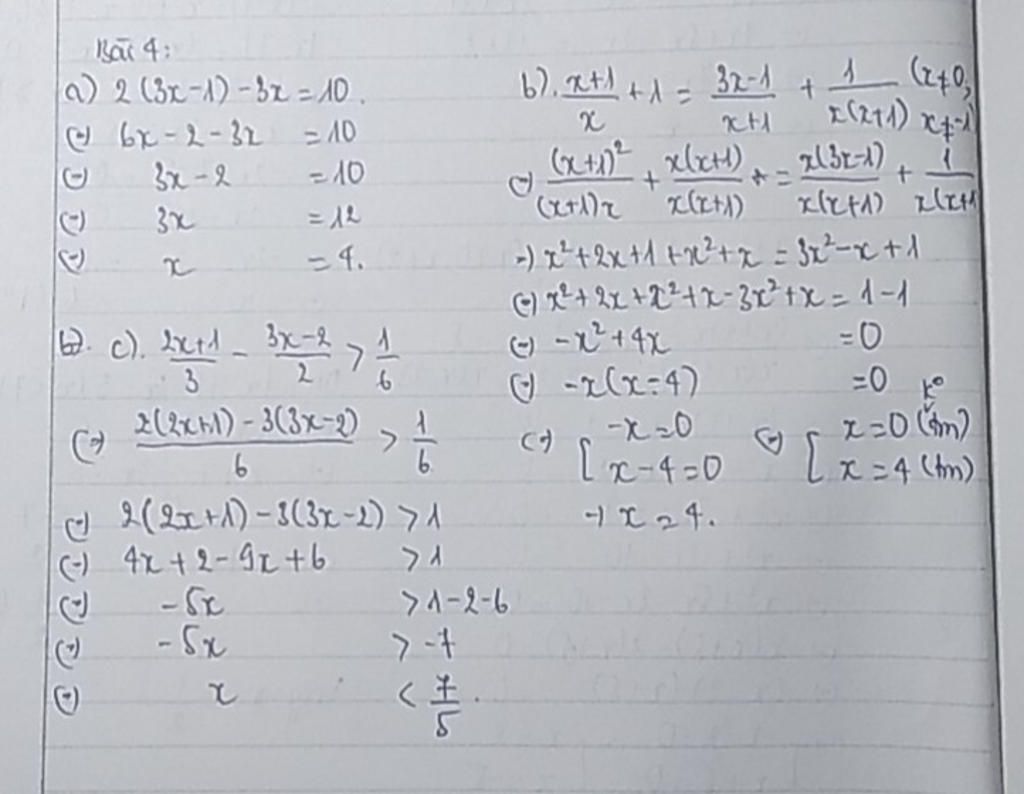 Bài 4:
a) 2(3x-1)-3x=10.
(=) 6x-2-3x =10
(=) 3x-2 =10
(=) 3x =12
(=) x =4.
b). \frac{x+1}{x} + 1 = \frac{3x-1}{x+1} + \frac{1}{x(x+1)} (x≠0, x≠-1)
(=) \frac{(x+1)^2}{(x+1)x} + \frac{x(x+1)}{x(x+1)} = \frac{x(3x-1)}{x(x+1)} + \frac{1}{x(x+1
=) x²+2x+1+x²+x = 3x²-x+1
(=) x²+2x+x²+x-3x²+x = 1-1
(=) -x²+4x =0
(=) -x(x-4) =0
(=) [ -x=0 (=) [ x=0 (ko tm)
x-4=0 x=4 (tm)
→ x=4.
c). \frac{2x+1}{3} - \frac{3x-2}{2} > \frac{1}{6}
(=) \frac{2(2x+1)-3(3x-2)}{6} > \frac{1}{6}
(=) 2(2x+1)-3(3x-2) >1
(=) 4x+2-9x+6 >1
(=) -5x >1-2-6
(=) -5x >-7
(=) x < \frac{7}{5}.